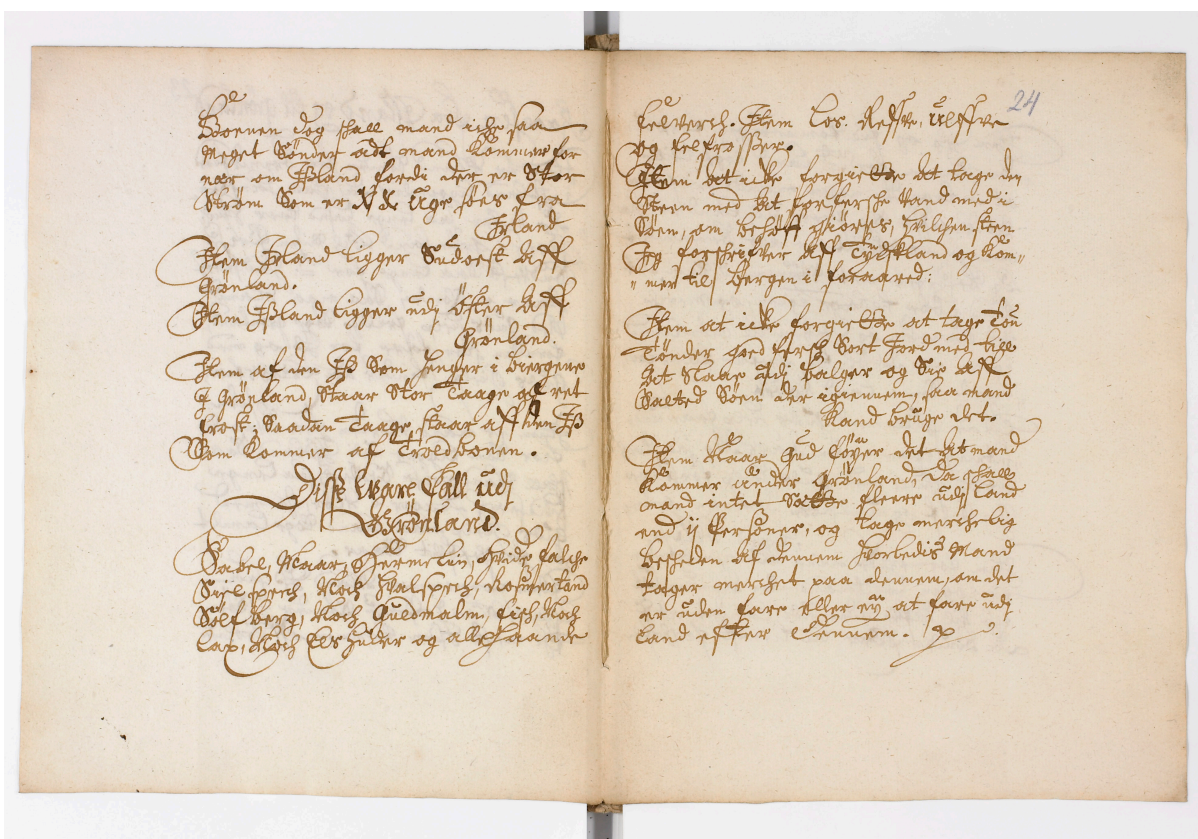 Boenen dog skall mand icke saa
meget Sønder adt mand kommer for
nær om Ißland fordi der er Stor
Strøm Som er X Uge søes fra
Irland
Item Irland ligger Sudoest Aff
Grønland.
Item Ißland ligger udj Øster Aff
Grønland.
Item af den Iß Som henger i biergene
I Grønland, Staar Stor Taage og ret
frost, Saadan Taage staar aff den Iß
Som Kommer af Troldbonen.
Disse Ware fall udj
Grønland.
Sabel, Maar, Hermelin, Hvide falche
Sielspech, Noch Hvalspech, Rosmertand
Sølf berg, Noch Guldmalm, fisch, Noch
lax, Noch Els huder og allehaande
24
felverch. Item Los. Reffve, Ulffve
og felfrosser.
Item At icke forgiette At tage den
Steen med At for fersche Vand med i
Søen, om behøff giøres, hvilchen steen
Jeg forskrifver Aff Tydskland og Kom-
mer til Bergen i foraared:
Item at icke forgiette at tage Tou
Tønder goed fersch Sort Jord med till
At Slaae udj balger og Sie Aff
Salted Søen der igiennem, saa mand
Kand bruge det.
Item Naar Gud føyer det At mand
Kommer under Grønland, Da skall
mand intet Sette fleere udj land
end ij Personer, og tage merchelig
bescheden af dennem hvorledis Mand
tager merchet paa dennem, om det
er uden fare eller ey, at fare udj
land effter dennem.